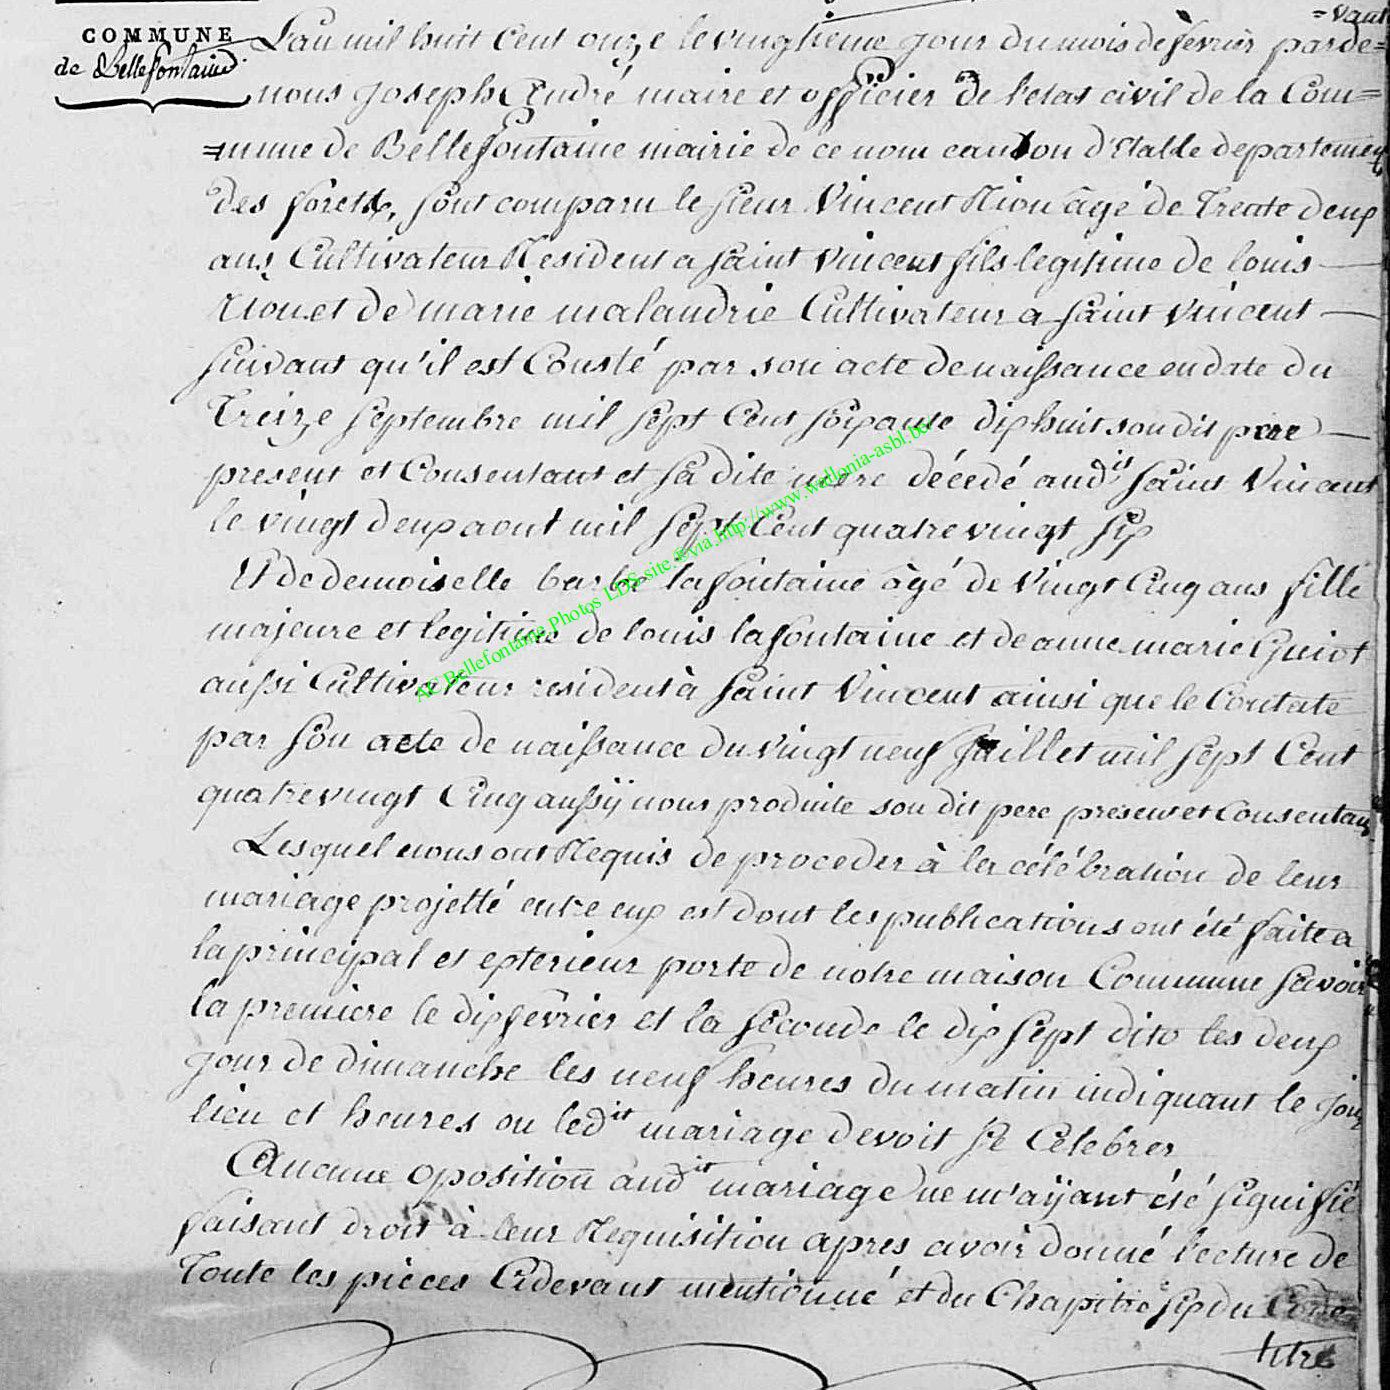 COMMUNE
de Bellefontaine
L'an mil huit Cent onze le vingtieme jour du mois de fevrier parde=
=vant
nous joseph André maire et officier de l'etat civil de la Com=
=mune de Bellefontaine mairie de ce nom canton d'Etalle departement
des forets, sont comparu le sieur Vincent Nion âgé de Trente deux
ans Cultivateur Resident a saint vincent fils legitime de louis
Nion et de marie malandrie Cultivateur a saint vincent
suivant qu'il est Consté par son acte de naissance en date du
Treize septembre mil sept Cent soixante dix huit son dit pere
present et Consentant et sa dite mere décédé aud.it saint Vincent
le vingt deux aout mil sept Cent quatre vingt six
Et de demoiselle barbe lafontaine âgé de Vingt Cinq ans fille
majeure et legitime de louis lafontaine et de anne marie Guiot
aussi Cultivateur resident à saint Vincent ainsi que le Contate
par son acte de naissance du vingt neuf juillet mil sept Cent
quatre vingt Cinq aussÿ nous produite son dit pere present et Consentant
Lesquel nous ont Requis de proceder à la célébration de leur
mariage projetté entre eux est dont les publications ont été faite a
la principal et exterieur porte de notre maison Commune savoir
la premiere le dix février et la seconde le dix sept dito les deux
jour de dimanche les neuf heures du matin indiquant le jour
lieu et heures ou led.it mariage devoit se Celebrer
Aucune oposition aud.it mariage ne m'aÿant été signifié
faisant droit à leur Requisition apres avoir donné lecture de
Toute les pieces Cidevant mentionné et du Chapitre six du Code
titre
AC Bellefontaine Photos LDS-site.®via http://www.wallonia-asbl.be/